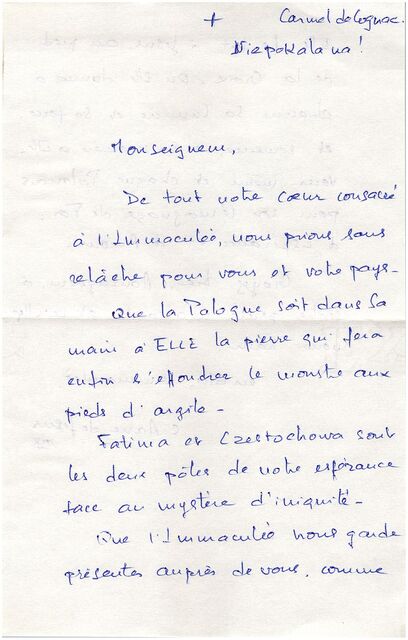 + Carmel de Cognac.
Niepokalana!
Monseigneur,
De tout notre cœur consacré
à l'Immaculée, nous prions sans
relâche pour vous et votre pays-
Que la Pologne soit dans sa
main à ELLE la pierre qui fera
enfin s'effondrer le monstre aux
pieds d'argile-
Fatima et Czestochowa sont
les deux pôles de notre espérance
face au mystère d'iniquité-
Que l'Immaculée nous garde
présentes auprès de vous, comme